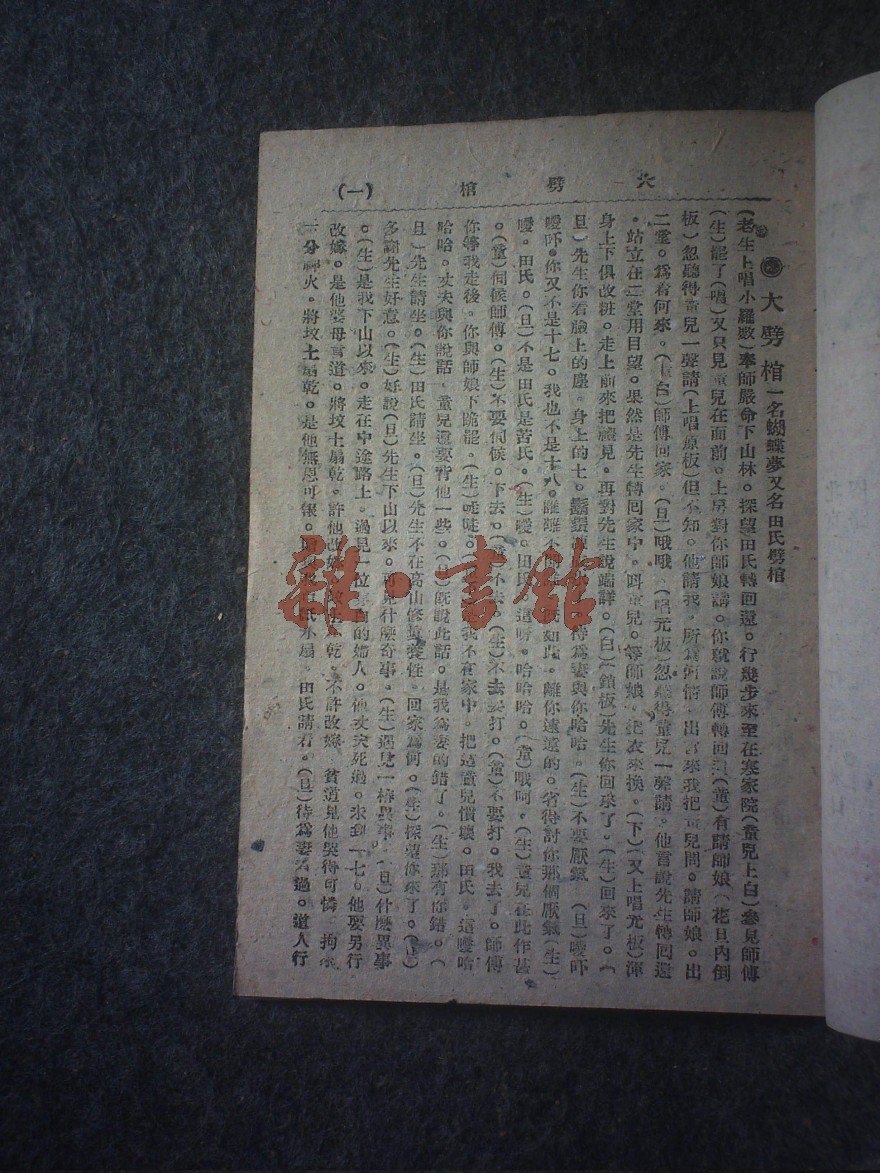 大劈棺 (一)
大劈棺 一名蝴蝶夢又名田氏劈棺
(老生上唱小羅數)奉師嚴命下山林。探望田氏轉回還。行幾步來至在寒家院(童兒上白)參見師傅
(生)罷了(唱)又只見童兒在面前。上房對你師娘講。你就說師傅轉回還(童)有請師娘(花旦內倒
板)忽聽得童兒一聲請(上唱原板)但不知。他請我。所為何情。出言來我把童兒問。請師娘。出
二堂。為着何來。(童白)師傅回家。(旦)哦哦。(唱元板)忽聽得童兒一聲請。他言說先生轉回還
。站立在二堂用目望。果然是先生轉回家中。叫童兒。等師娘。把衣來換。(下)(又上唱元板)渾
身上下俱改粧。走上前來把禮見。再對先生說端詳。(白)(鎖板)先生你回來了。(生)回來了。(
旦)先生你看臉上的塵。身上的土。待為妻與你哈哈。(生)不要厭氣(旦)噯吓
噯吓。你又不是十七。我也不是十八。離你遠遠的。省得討你那個厭氣(生)
噯。田氏。(旦)不是田氏是苦氏。(生)噯。田氏。這呀。哈哈哈。(童)哦呵。(生)童兒在此作甚
。(童)伺候師傅。(生)不要伺候。下去。(童)不去。(生)不去要打。(童)不要打。我去了。師傅
你等我走後。你與師娘下跪罷。(生)唗唗。我不在家中。把這童兒慣壞。田氏。這噯哈
哈哈。丈夫與你說話。童兒還要背他一些。(旦)既說此話。是我為妻的錯了。(生)那有你錯。(
旦)先生請坐。(生)田氏請坐。(旦)先生不在高山修眞養性。回家為何。(生)探望你來了。(旦)
多謝先生好意。(生)好說(旦)先生下山以來。可見什麼奇事。(生)遇見一樁異事。(旦)什麼異事
。(生)是我下山以來。走在中途路上。遇見一位的婦人。他丈夫死過。未到一七。他要另行
改嫁。是他婆母言道。將坟土扇乾。許他改嫁。乾。不許改嫁。貧道見他哭得可憐。拘來
三分神火。將坟土扇乾。是他無恩可報。扇。田氏請看。(旦)待為妻看過。道人行
雜·書館